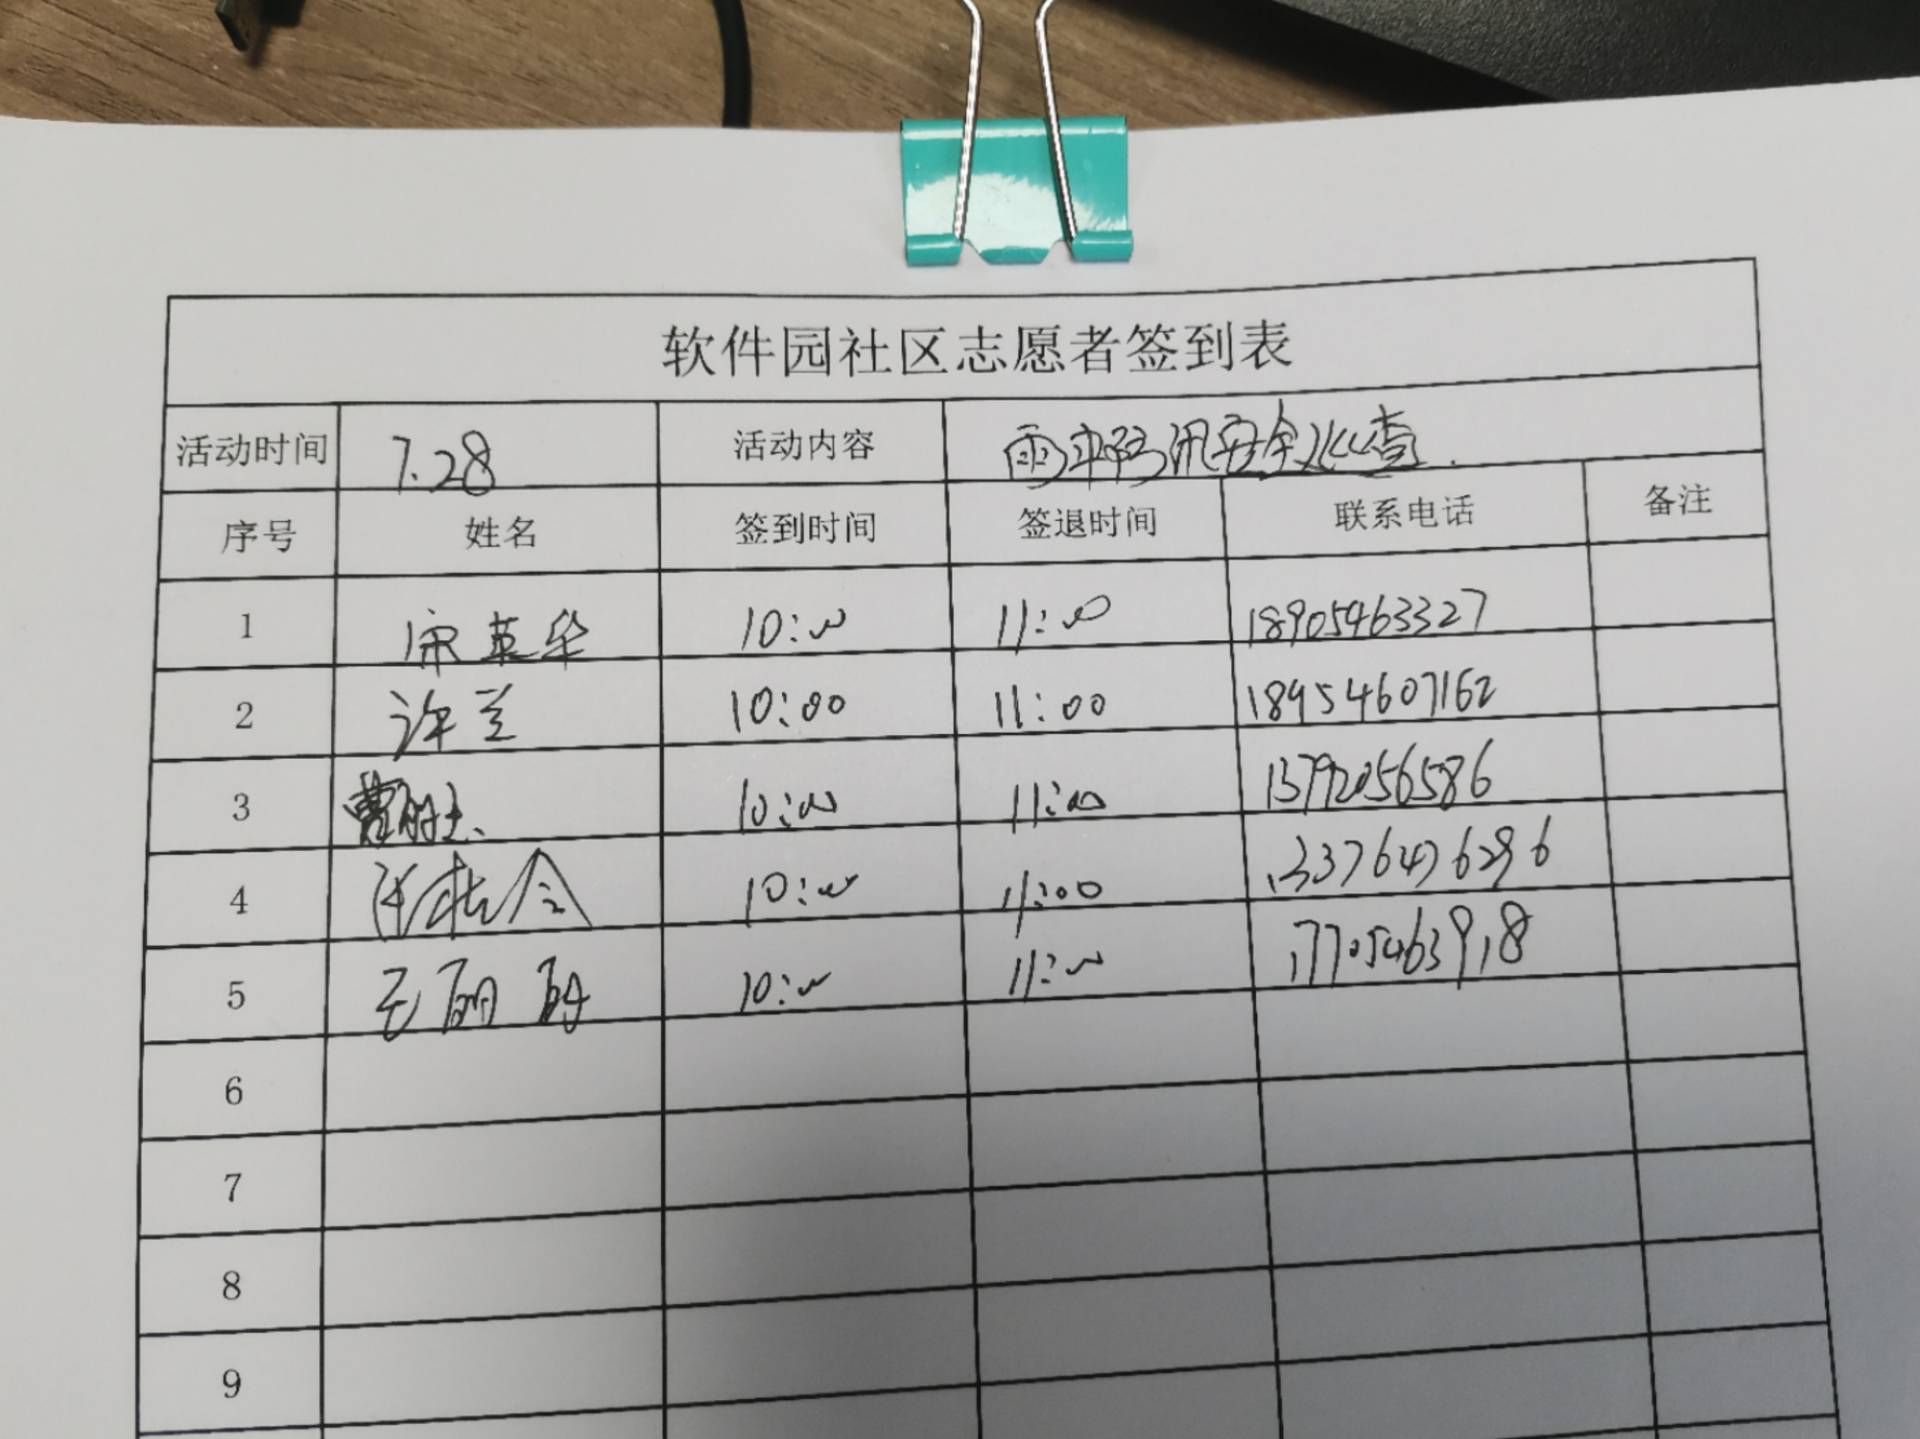 软件园社区志愿者签到表
活动时间 7.28 活动内容 雨季防汛安全巡查.
序号 姓名 签到时间 签退时间 联系电话 备注
1 宋英华 10:00 11:00 18905463327
2 许兰 10:00 11:00 18954607162
3 10:00 11:00 13792056586
4 10:00 11:00 13376476296
5 王丽 10:00 11:00 17705463918
6
7
8
9